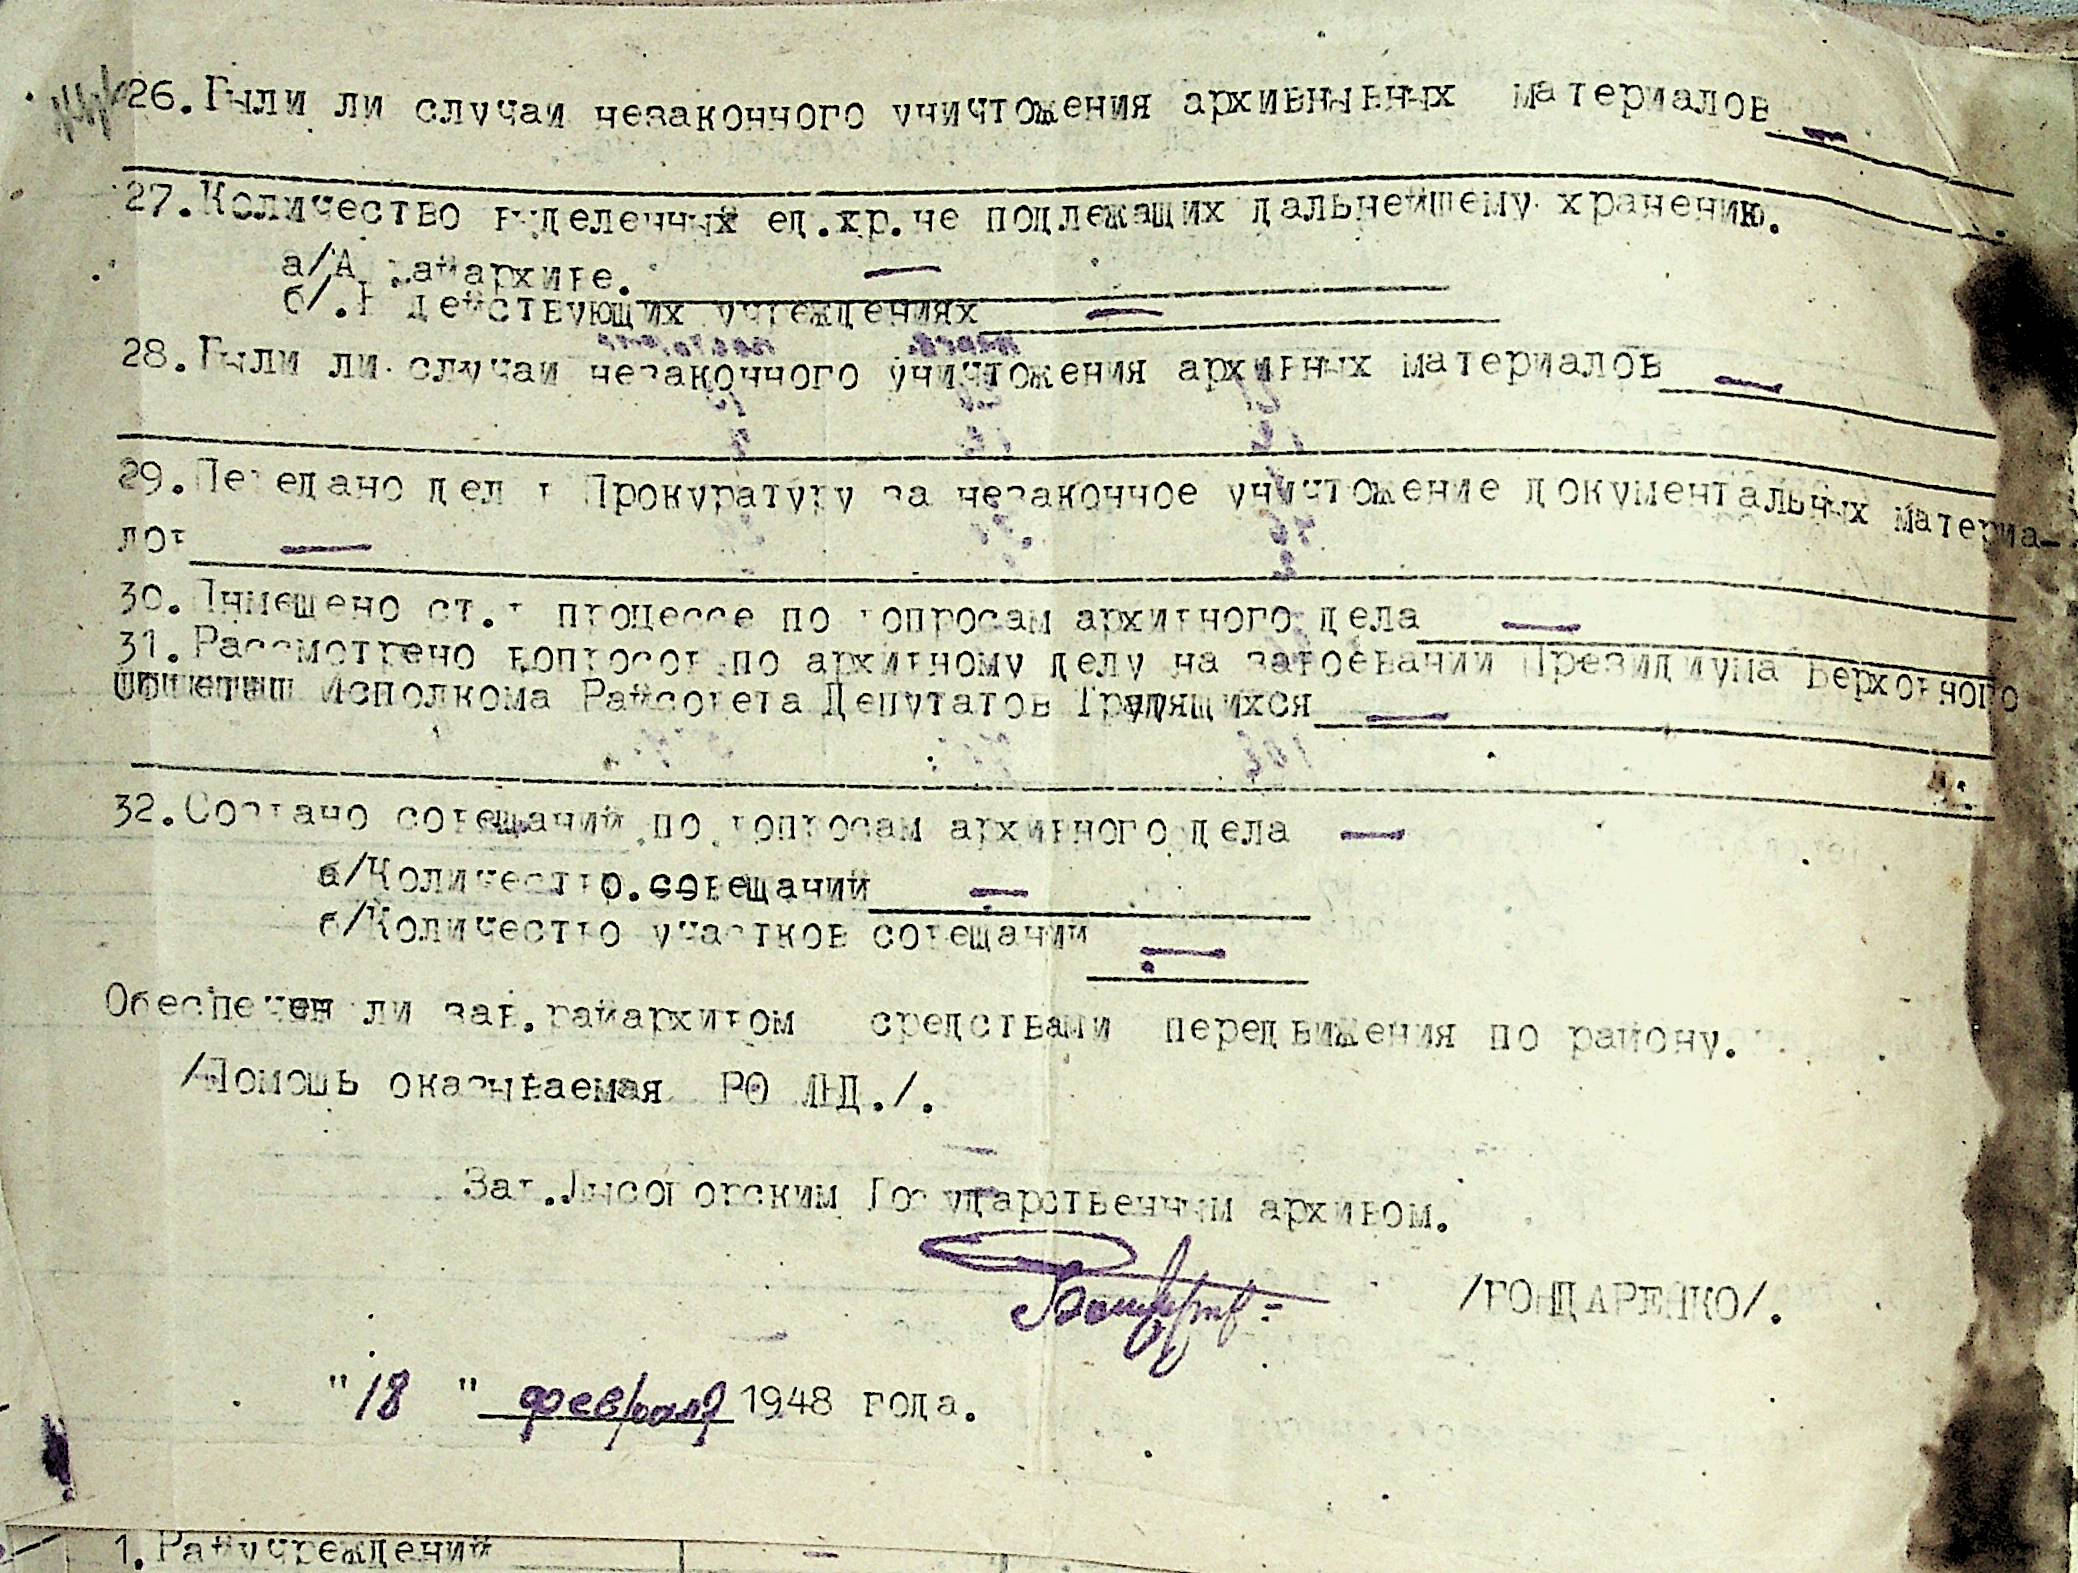 26.Были ли случаи незаконного уничтожения архивнывных материалов —
27.Количество выделенных ед.хр.не подлежащих дальнейшему хранению.
а/А райархиве. —
б/.В действующих учреждениях —
28.Были ли случаи незаконного уничтожения архивных материалов —
29.Передано дел в Прокуратуру за незаконное уничтожение документальных материа-
лов —
30. ст.в процессе по вопросам архивного дела —
31.Рассмотрено вопросов по архивному делу на Президиума Верховного
Исполкома Райсовета Депутатов Трудящихся —
32.Создано совещаний по вопросам архивного дела —
а/Количество.совещаний —
б/Количество участков совещаний —
Обеспечен ли зав.райархивом средствами передвижения по району.
/Помощь оказываемая РО МВД./.
—
Зав.Лысогорским Государственным архивом.
/ГОНДАРЕНКО/.
"18 " февраля 1948 года.
1.Райучреждений —